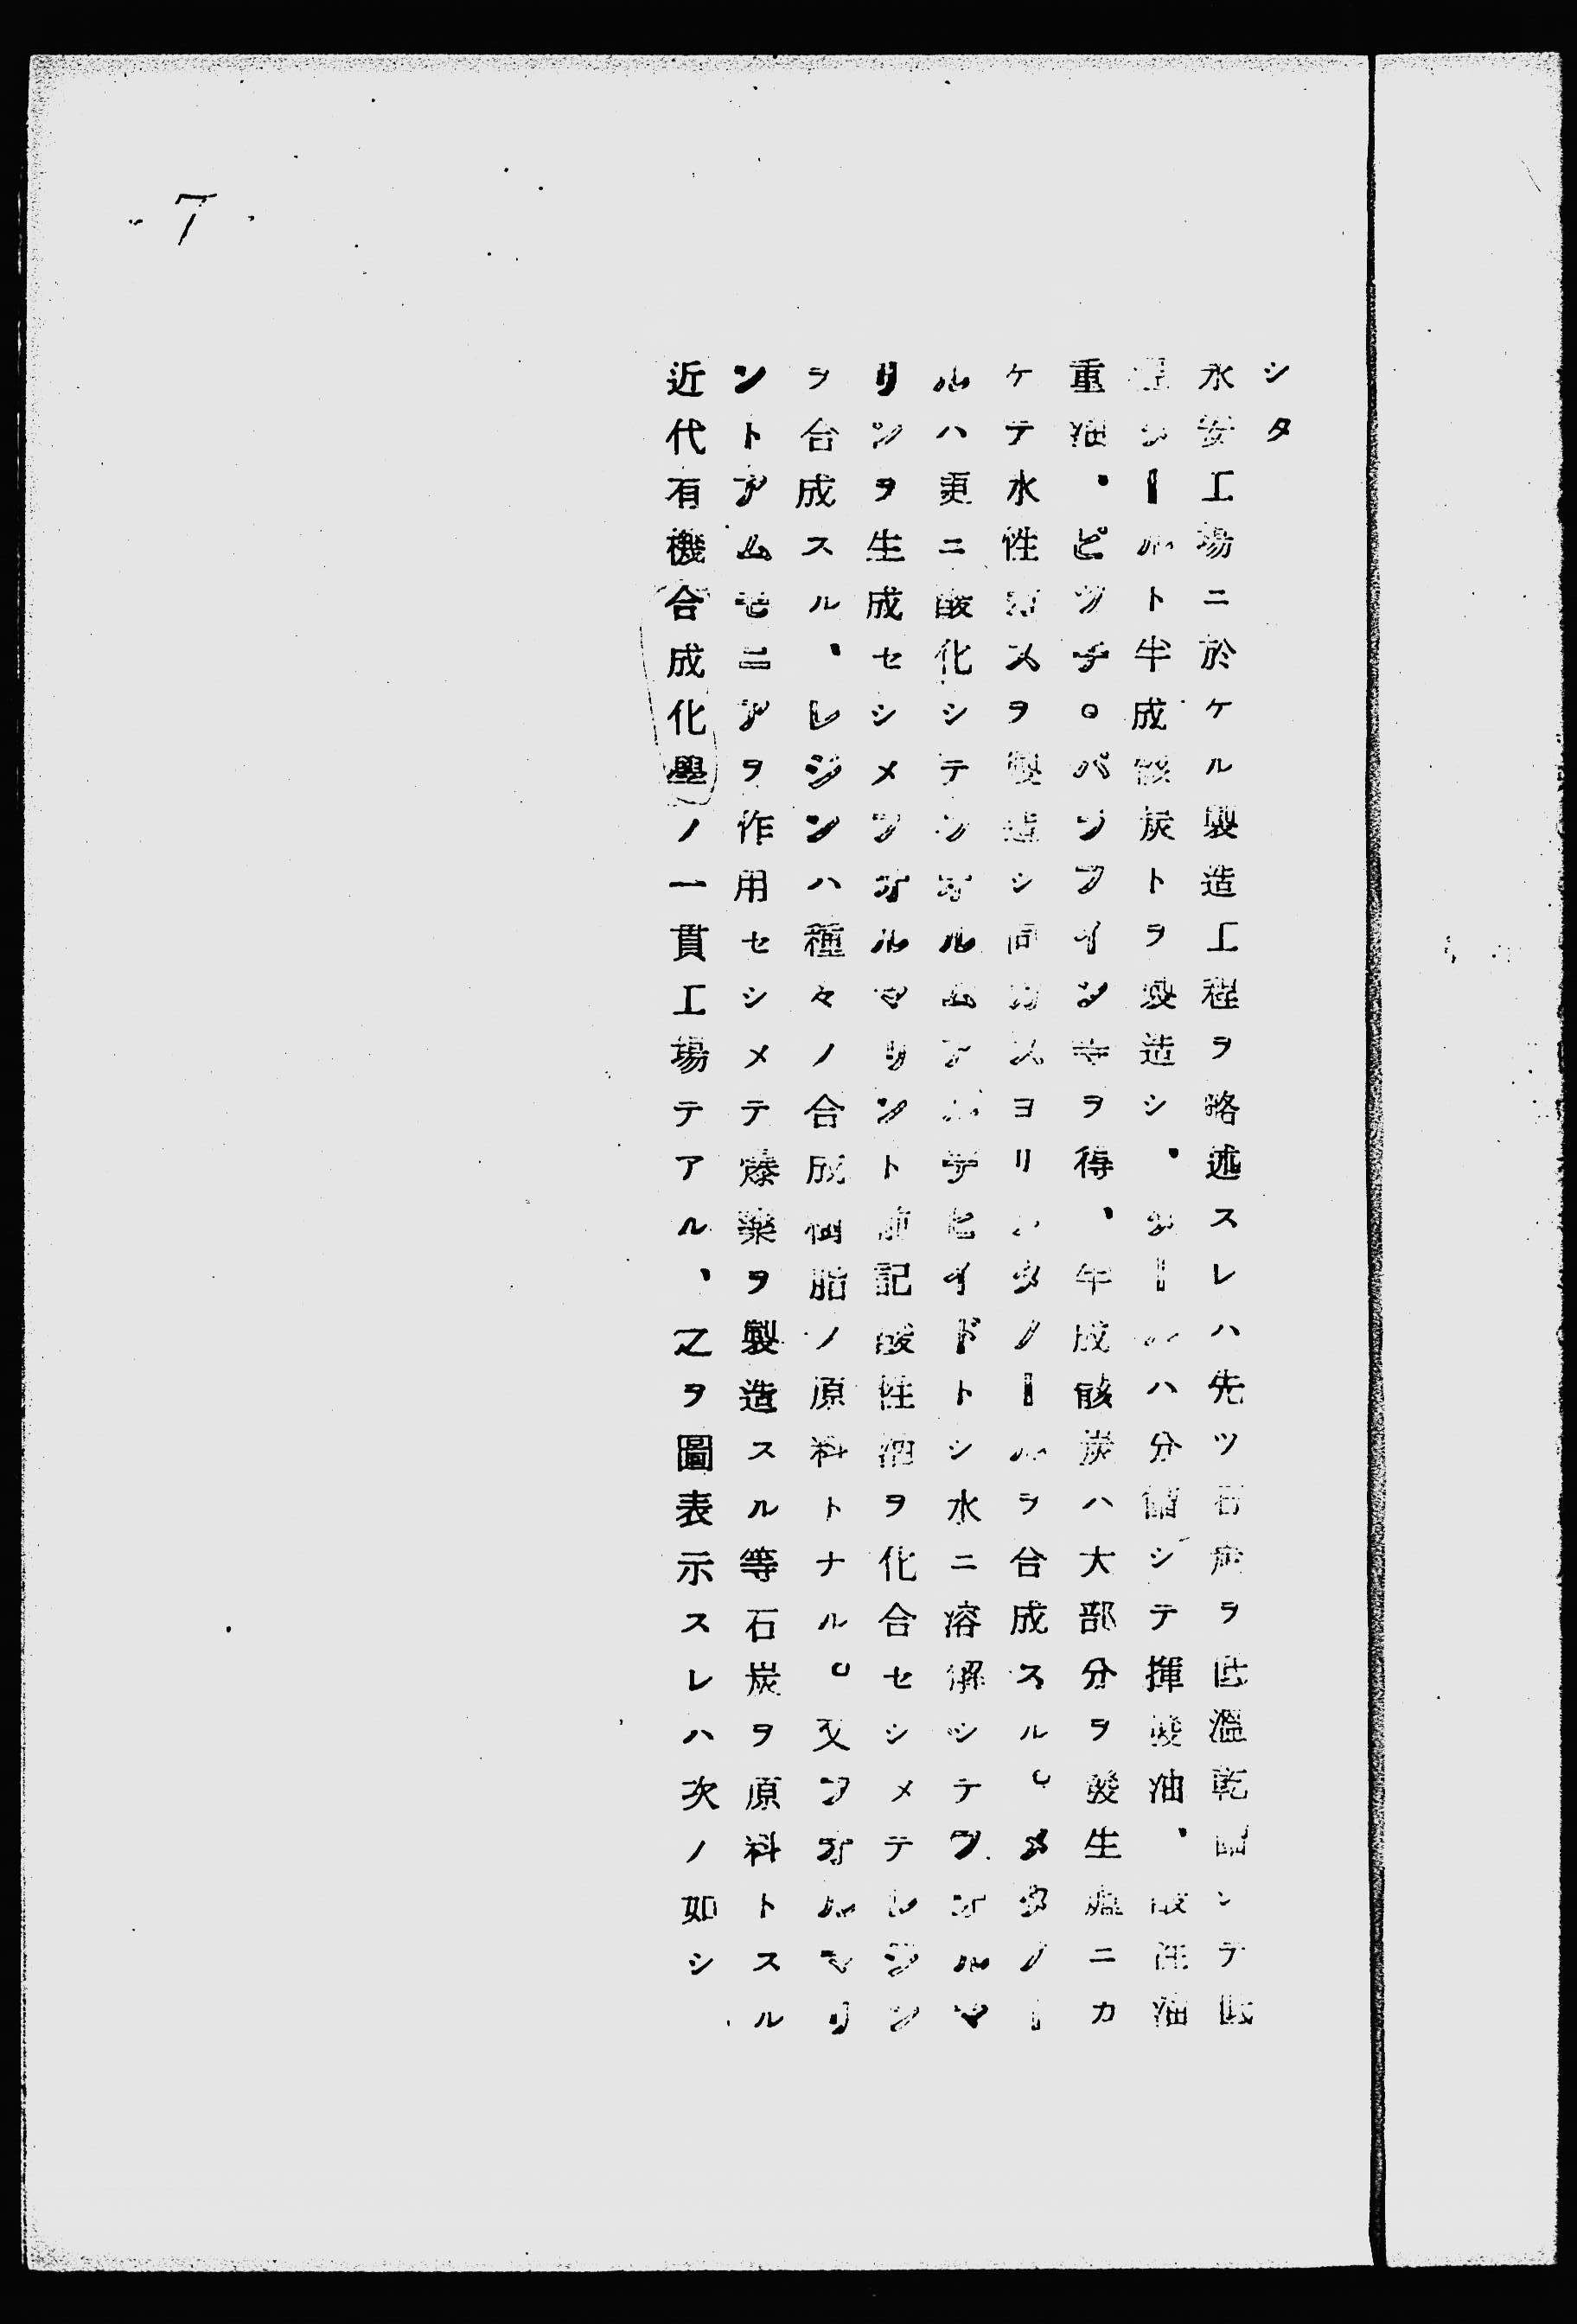 シタ
永安工場ニ於ケル製造工程ヲ略述スレハ先ツ石炭ヲ低溫乾餾シテ低
溫タールト半成骸炭トヲ製造シ、タールハ分餾シテ揮發油、酸性油
重油、ピッチ。パラフイン等ヲ得、半成骸炭ハ大部分ヲ發生爐ニカ
ケテ水性ガスヲ製造シ同ガスヨリメタノールヲ合成スル。メタノー
ルハ更ニ酸化シテフオルムアルデヒイドトシ水ニ溶解シテフオルマ
リンヲ生成セシメフオルマリント前記酸性油ヲ化合セシメテレジン
ヲ合成スル、レジンハ種々ノ合成樹脂ノ原料トナル。又フオルマリ
ントアムモニアヲ作用セシメテ爆藥ヲ製造スル等石炭ヲ原料トスル
近代有機合成化學ノ一貫工場テアル、之ヲ圖表示スレハ次ノ如シ
7